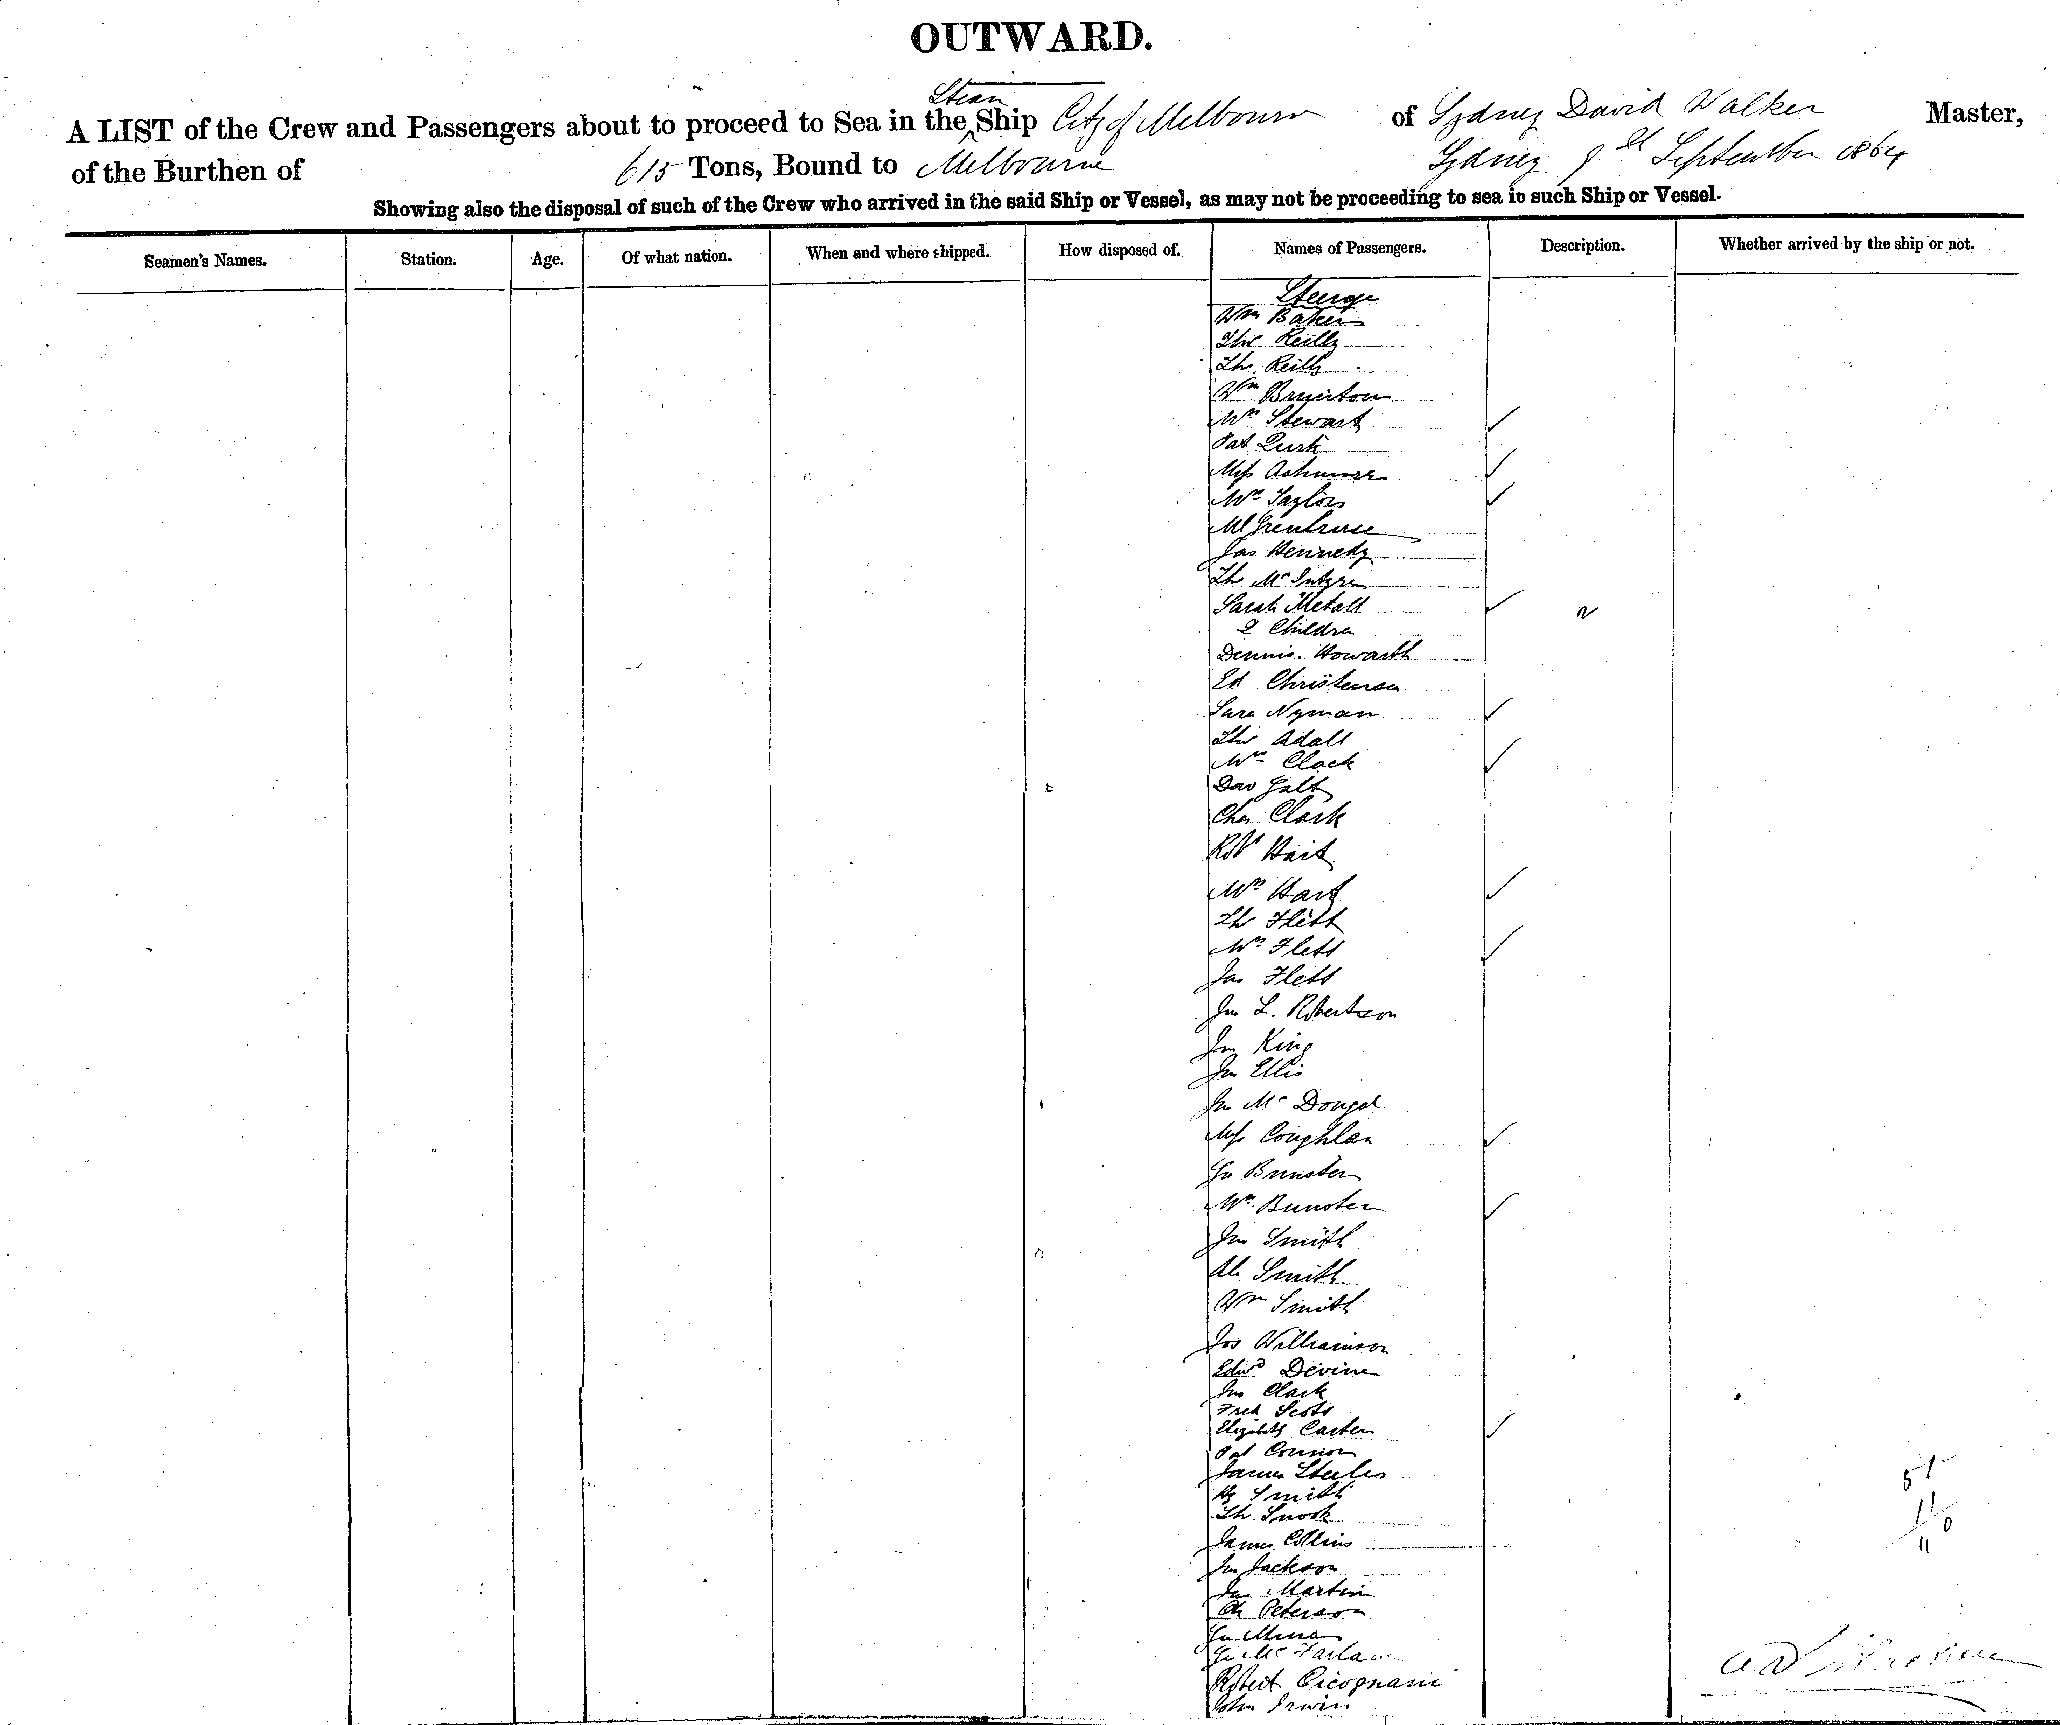 OUTWARD.
Steam
A LIST of the Crew and Passengers about to proceed to Sea in the Ship City of Melbourne of Sydney David Walker Master,
of the Burthen of 615 Tons, Bound to Melbourne Sydney September 1864
Showing also the disposal of such of the Crew who arrived in the said Ship or Vessel, as may not be proceeding to sea in such Ship or Vessel.
Seamen's Names. Station. Age. Of what nation. When and where shipped. How disposed of. Names of Passengers. Description. Whether arrived by the ship or not.
Steerage
Wm Baker
Thos Reilly
Thos Reilly
Wm
Mrs Stewart
Pat Quirk
Miss
Mrs Taylor
Jas Kennedy
Th McIntyre
Sarah Metall 2
2 Children
Dennis Howarth
Ed Christensen
Sara Nyman
Thos Adall
Mrs Clack
Dav Galt
Chas Clark
Robt Hart
Mrs Hart
Thos Flett
Mrs Flett
Jas Flett
Jno L. Robertson
Jno King
Jno Ellis
Jno McDougal
Miss Coughlan
Geo Bunster
Mrs Bunster
Jno Smith
Alx Smith
Wm Smith
Jos Williamson
Edwd Devine
Jno Clark
Fred Scott
Elizabeth Carter
Pat Connor
James Steeles
Hy Smith
Th. Snook
James Collins
Jno Jackson
Martin
Ch Peterson
51
11/0
11
Geo
Geo McFarlan
Robert Cicognani
John Irwin